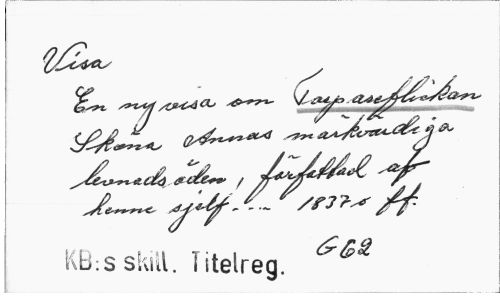 Visa
En ny visa om Torpareflickan
Sköna Annas märkvärdiga
levnadsöden, författad af
henne sjelf.... 1837 o ff.
G 62
KB:s skill. Titelreg.